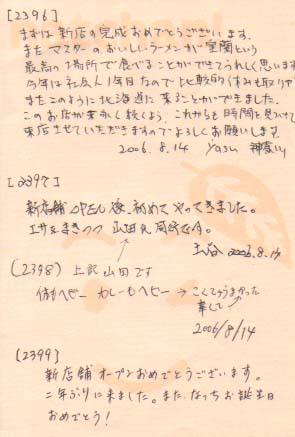 [2396]
まずは新店の完成おめでとうございます。
またマスターのおいしいラーメンが室蘭という
最高の場所で食べることができてうれしく思います
今年は社会人1年目なので比較的休みも取りや
またこのように北海道に来ることができました。
このお店が末永く続くよう、これからも時間を見つけて
来店させていただきますのでよろしくお願いします。
2006.8.14 yasu 神奈川
[2397]
新店舗OPEN後、初めてやってきました。
エサをまきつつ 山田氏 同行です。
2006.8.14
(2398) 上記山田です
カレーもヘビー → こくとうまかった
辛くて
2006/8/14
[2399]
新店舗オープンおめでとうございます。
二年ぶりに来ました。また、なっちお誕生日
おめでとう!